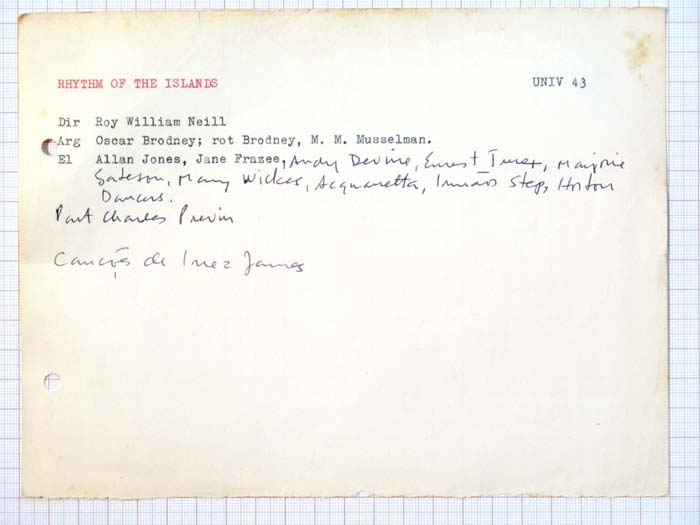 RHYTHM OF THE ISLANDS UNIV 43
Dir Roy William Neill
Arg Oscar Brodney; rot Brodney, M. M. Musselman.
El Allan Jones, Jane Frazee, Andy Devine, Ernest Truex, Marjorie
Gateson, Mary Wickes, Acquanetta, Irmãos Step, Horton
Dancers.
Part Charles Previn
Canções de Inez James